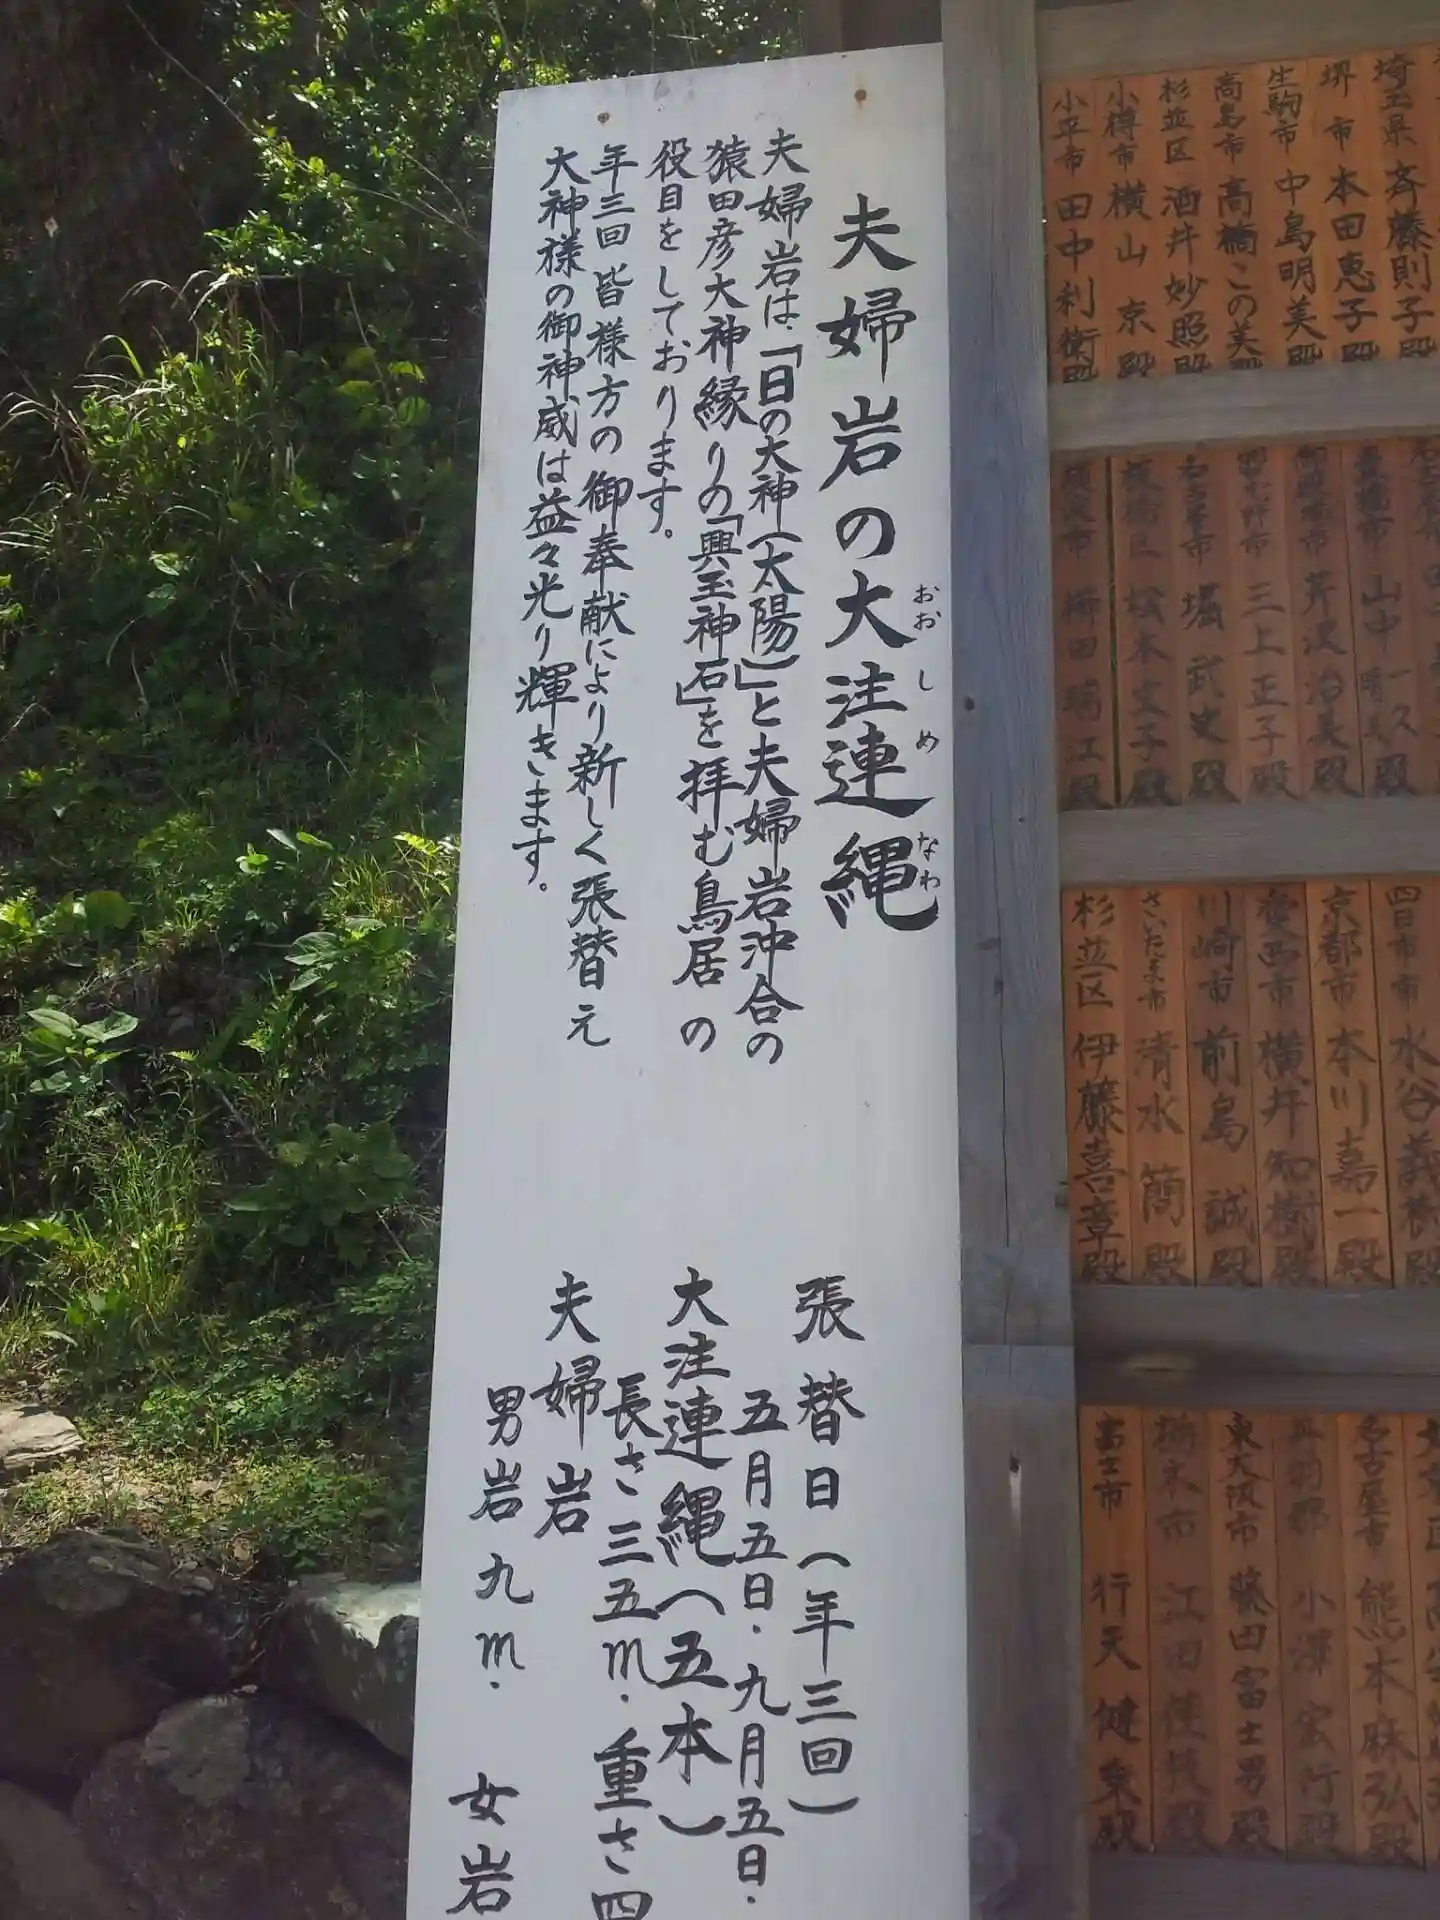 夫婦岩の大注連縄
おおしめなわ
夫婦岩は、「日の大神(太陽)」と夫婦岩沖合の
猿田彦大神縁りの「興玉神石」を拝む鳥居の
役目をしております。
年三回皆様方の御奉献により新しく張替え
大神様の御神威は益々光り輝きます。
張替日(年三回)
五月五日・九月五日・
大注連縄(五本)
長さ三五m・重さ四
夫婦岩
男岩九m・女岩
埼玉県 斉藤則子殿
堺市 本田恵子殿
生駒市 中島明美殿
高島市 高橋この美殿
杉並区 酒井妙照殿
小樽市 横山京殿
小平市 田中利衛殿
山中晴美殿
芹沢治美殿
三上正子殿
名古屋市 堀武史殿
板橋区 坂本文子殿
櫛田瑞江殿
四日市市 水谷義樹
京都市 本川嘉一殿
愛西市 横井知樹殿
川崎市 前島誠殿
さいたま市 清水簡殿
杉並区 伊藤喜章殿
名古屋市 熊本麻弘殿
小澤宏行殿
東大阪市 藤田富士男殿
江田佳枝殿
富士市 行天健乗殿